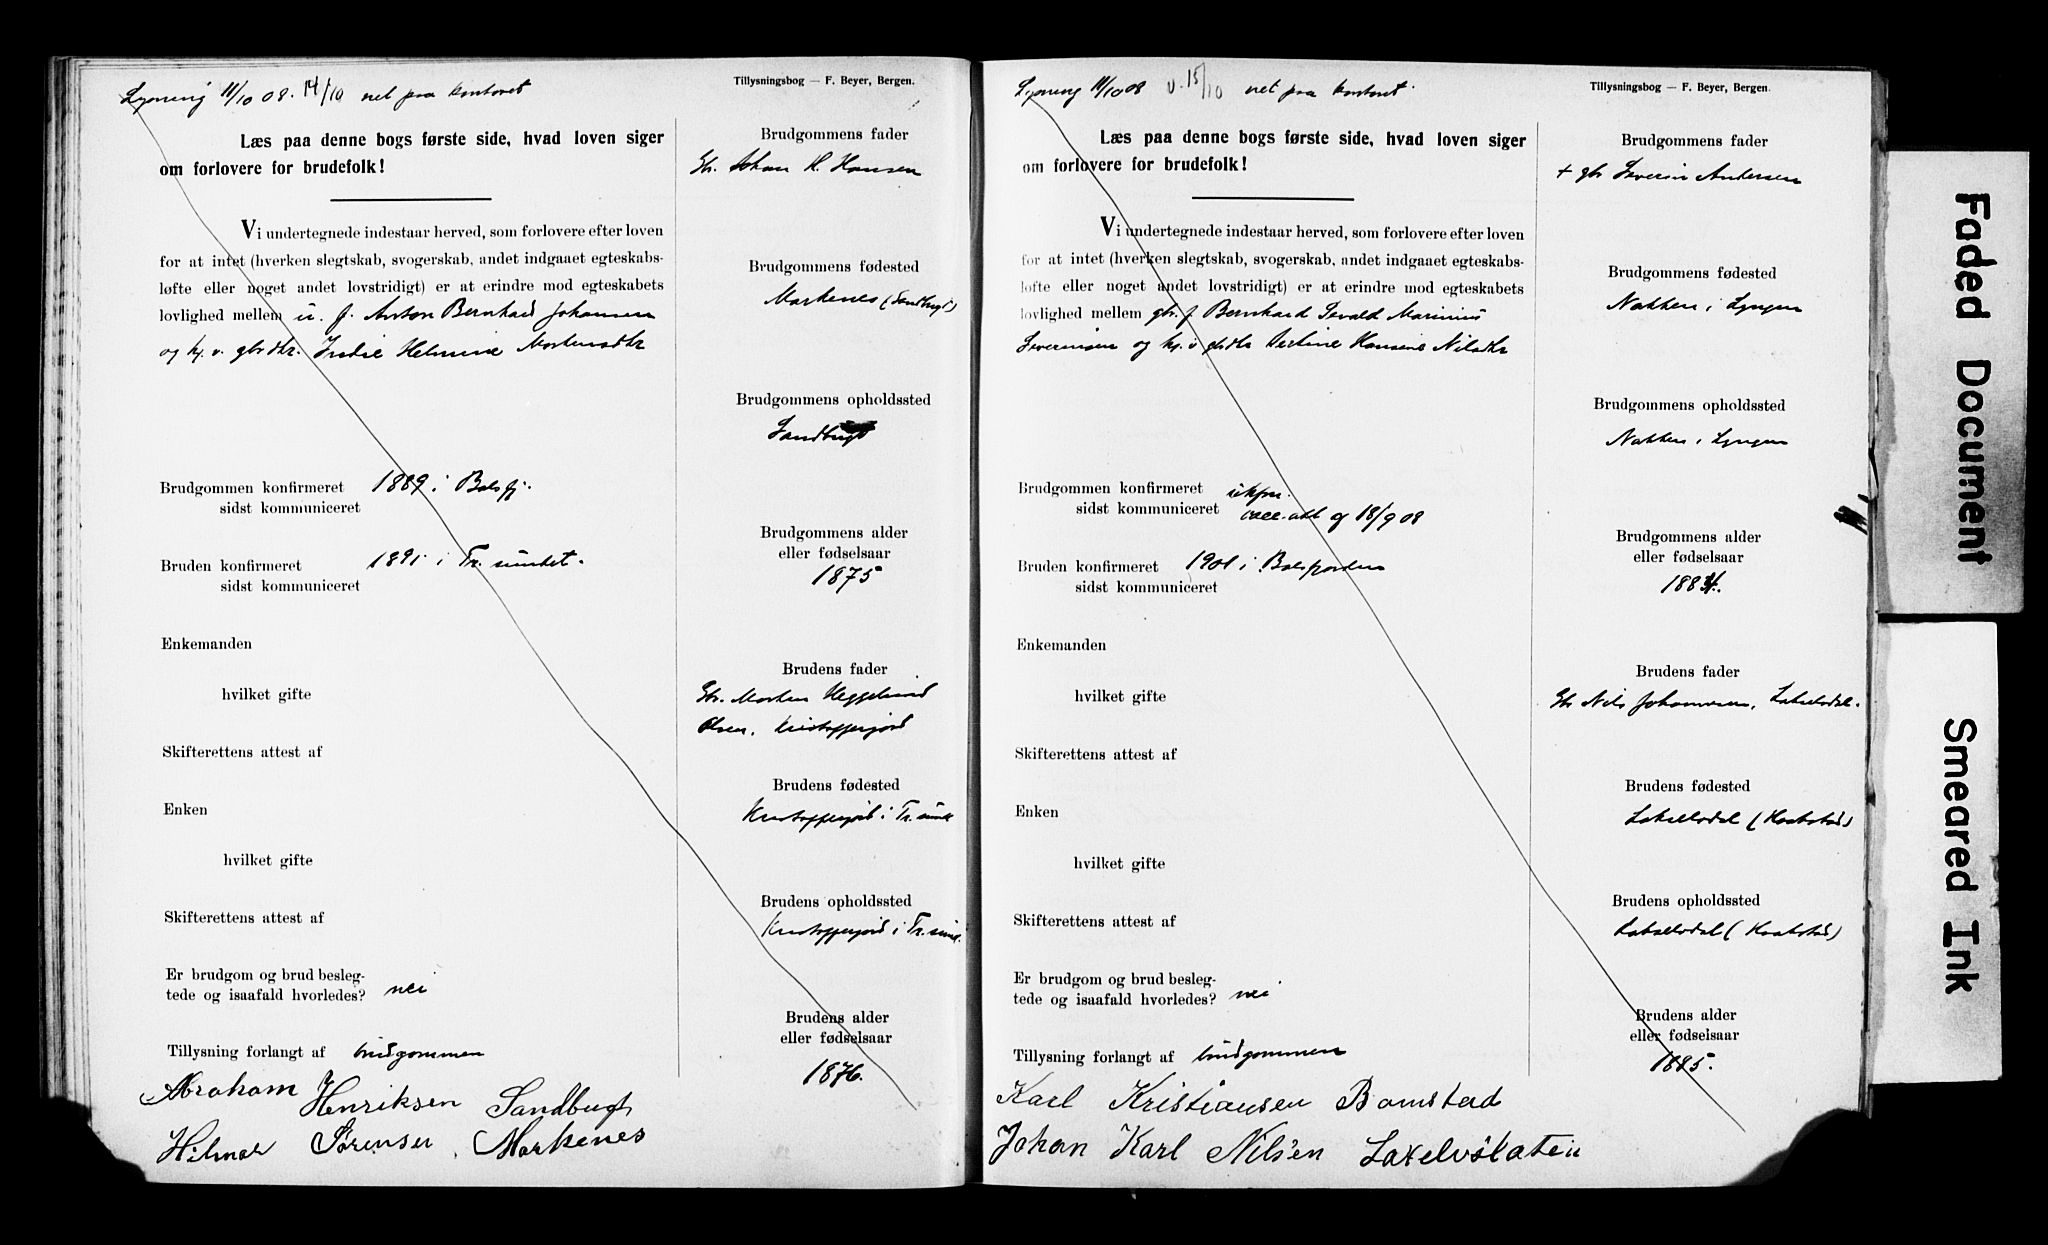 Tillysningsbog — F. Beyer, Bergen.
Lysning 11/10 08. 14/10 net paa kontoret
Læs paa denne bogs første side, hvad loven siger
om forlovere for brudefolk!
Vi undertegnede indestaar herved, som forlovere efter loven
for at intet (hverken slegtskab, svogerskab, andet indgaaet egteskabs-
løfte eller noget andet lovstridigt) er at erindre mod egteskabets
lovlighed mellem u. f. Anton Bernhard Johansen
og hj. v. gbrdtr. Indie Helmine Mortensdtr
Brudgommen konfirmeret 1889 i Balsfj.
sidst kommuniceret
Bruden konfirmeret 1891 i Tr.sundet.
sidst kommuniceret
Enkemanden
hvilket gifte
Skifterettens attest af
Enken
hvilket gifte
Skifterettens attest af
Er brudgom og brud besleg-
tede og isaafald hvorledes? nei
Tillysning forlangt af brudgommen
Abraham Henriksen Sandbugt
Hilmar Sørensen, Markenes
Brudgommens fader
Gbr. Johan H. Hansen
Brudgommens fødested
Markenes (Sandbugt)
Brudgommens opholdssted
Sandbugt
Brudgommens alder
eller fødselsaar
1875
Brudens fader
Gbr. Morten Heggelund
Olsen, Kristofferjord
Brudens fødested
Kristofferjord i Tr.sund
Brudens opholdssted
Kristofferjord i Tr.sund.
Brudens alder
eller fødselsaar
1876.
Tillysningsbog — F. Beyer, Bergen.
Lysning 11/10 08 v. 15/10 net paa kontoret.
Læs paa denne bogs første side, hvad loven siger
om forlovere for brudefolk!
Vi undertegnede indestaar herved, som forlovere efter loven
for at intet (hverken slegtskab, svogerskab, andet indgaaet egteskabs-
løfte eller noget andet lovstridigt) er at erindre mod egteskabets
lovlighed mellem gbr. f Bernhard Sevald Marinius
Severinsen og hj. v gbdtr Kristine Hansine Nilsdtr
Brudgommen konfirmeret ukfm.
sidst kommuniceret vacc. att af 18/9 08
Bruden konfirmeret 1901 i Balsfjorden
sidst kommuniceret
Enkemanden
hvilket gifte
Skifterettens attest af
Enken
hvilket gifte
Skifterettens attest af
Er brudgom og brud besleg-
tede og isaafald hvorledes? nei
Tillysning forlangt af brudgommen
Karl Kristiansen Bomstad
Johan Karl Nilsen Laxelvslaten
Brudgommens fader
+ gbr Severin Andersen
Brudgommens fødested
Nakken i Lyngen
Brudgommens opholdssted
Nakken i Lyngen
Brudgommens alder
eller fødselsaar
1884.
Brudens fader
Gbr Nils Johannesen, Lakselvdal.
Brudens fødested
Lakselvdal (Kaatstad)
Brudens opholdssted
Lakselvdal (Kaatstad)
Brudens alder
eller fødselsaar
1885.
Faded Document
Smeared Ink